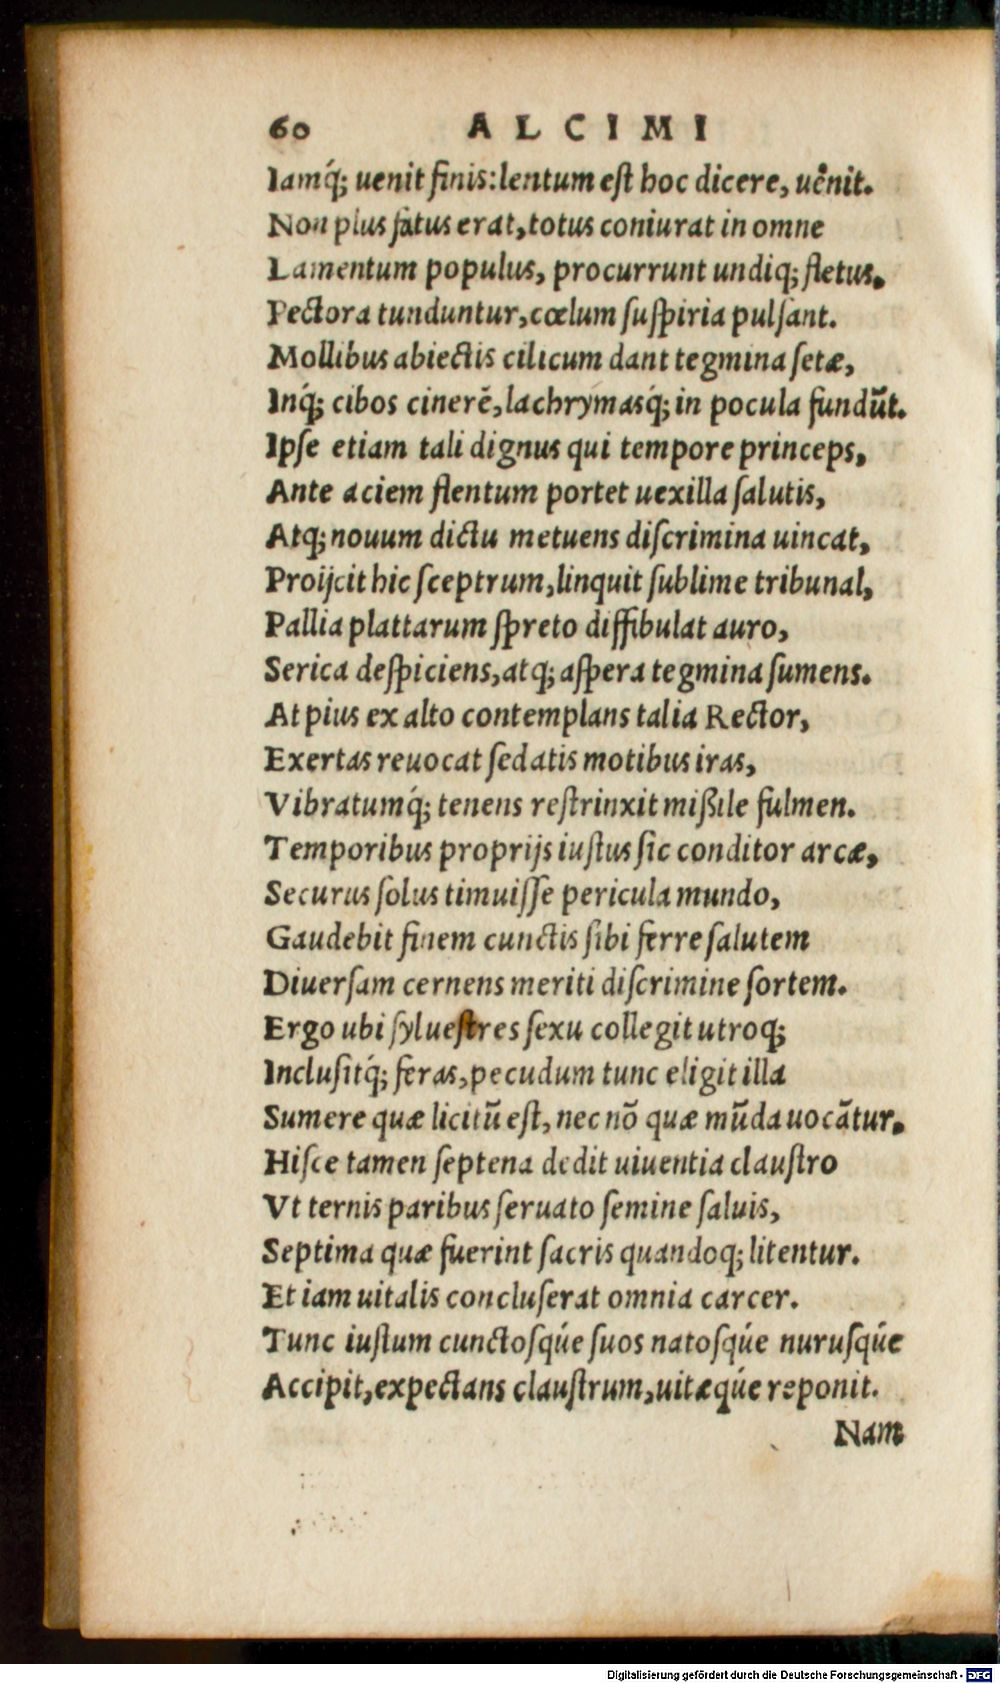 60 ALCIMI
Iamq́; uenit finis: lentum eſt hoc dicere, uênit.
Non plus fatus erat, totus coniurat in omne
Lamentum populus, procurrunt undiq; fletus.
Pectora tunduntur, cœlum ſuſpiria pulſant.
Mollibus abiectis cilicum dant tegmina ſetæ,
Inq́; cibos cinerē, lachrymasq́; in pocula fundūt.
Ipſe etiam tali dignus qui tempore princeps,
Ante aciem flentum portet uexilla ſalutis,
Atq; nouum dictu metuens diſcrimina uincat,
Proijcit hic ſceptrum, linquit ſublime tribunal,
Pallia plattarum ſpreto diffibulat auro,
Serica deſpiciens, atq; aſpera tegmina ſumens.
At pius ex alto contemplans talia Rector,
Exertas reuocat ſedatis motibus iras,
Vibratumq́; tenens reſtrinxit miſsile fulmen.
Temporibus proprijs iuſtus ſic conditor arcæ,
Securus ſolus timuiſſe pericula mundo,
Gaudebit finem cunctis ſibi ferre ſalutem
Diuerſam cernens meriti diſcrimine ſortem.
Ergo ubi ſylueſtres ſexu collegit utroq;
Incluſitq́; feras, pecudum tunc eligit illa
Sumere quæ licitū eſt, nec nō quæ mūda uocātur.
Hiſce tamen ſeptena dedit uiuentia clauſtro
Vt ternis paribus ſeruato ſemine ſaluis,
Septima quæ fuerint ſacris quandoq; litentur.
Et iam uitalis concluſerat omnia carcer.
Tunc iuſtum cunctoſqúe ſuos natoſqúe nuruſqúe
Accipit, expectans clauſtrum, uitæqúe reponit.
Nam
Digitalisierung gefördert durch die Deutsche Forschungsgemeinschaft - DFG